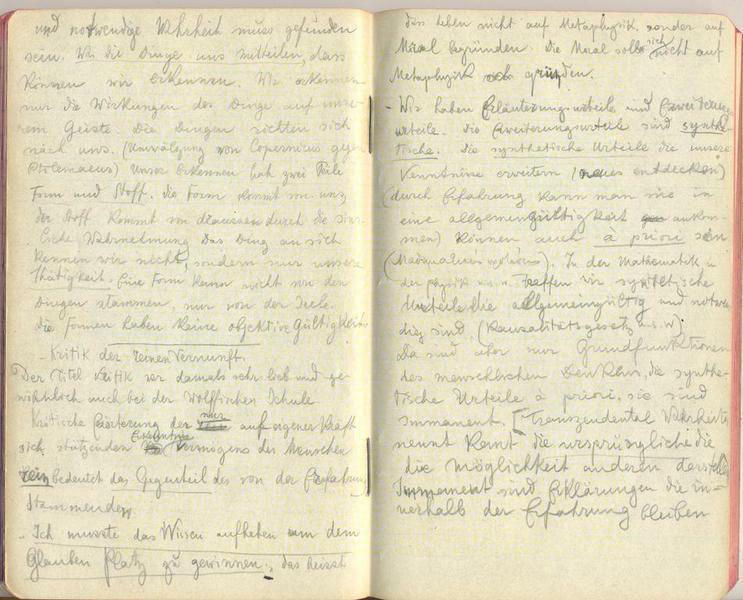 und notwendige Wahrheit muss gefunden
sein. Wie die Dinge uns mitteilen, dass
können wir erkennen. Wir erkennen
nur die Wirkungen des Dinge auf unse-
rem Geiste. Die Dingen richten sich
nach uns. (Umwälzung von Copernicus gegen
Ptolemaeus) Unser Erkennen hat zwei Teile
Form und Stoff. Die Form kommt von uns,
der Stoff kommt von draussen durch die sinn-
liche Wahrnehmung Das Ding an sich
kennen wir nicht, sondern nur unsere
Thätigkeit. Eine Form kann nicht von den
Dingen stammen, nur von der Seele.
Die Formen haben keine objektive Gültigkeit.
– Kritik der reinen Vernunft.
Der Titel Kritik war damals sehr lieb und ge-
wöhnlich auch bei der Wolffschen Schule
Kritische der nur auf eigener Kraft
sich stützenden Erkenntnis Vermögens des Menschen
rein bedeutet das Gegenteil des von der Erfahrung
Stammenden
„Ich musste das Wissen aufheben um dem
Glauben Platz zu gewinnen", das heisst
das Leben nicht auf Metaphysik, sonder auf
Moral begründen. Die Moral soll sich nicht auf
Metaphysik gründen.
– Wir haben Erläuterungsurteile und Erweiterungs
urteile. Die Erweiterungsurteil sind synthe-
tische. Die synthetische Urteile die unsere
Kenntnisse erweitern (neues entdecken)
(durch Erfahrung kann man nie in
eine allgemeingültigkeit ankom-
men) können auch à priori sein
In der Mathematik u
der physik u.s.w. treffen wir synthetische
Urteile die allgemeingültig und notwen
dig sind. (Kausalitätsgesetz u.s.w.)
Da sind aber nur Grundfunktionen
des menschlichen Denkens, die synthe-
tische Urteile à priori, sie sind
immanent. [Transzendental Wahrheiten
nennt Kant die ursprüngliche die
die möglichkeit anderen darstellen
Immanent sind Erklärungen die in-
nerhalb der Erfahrung bleiben